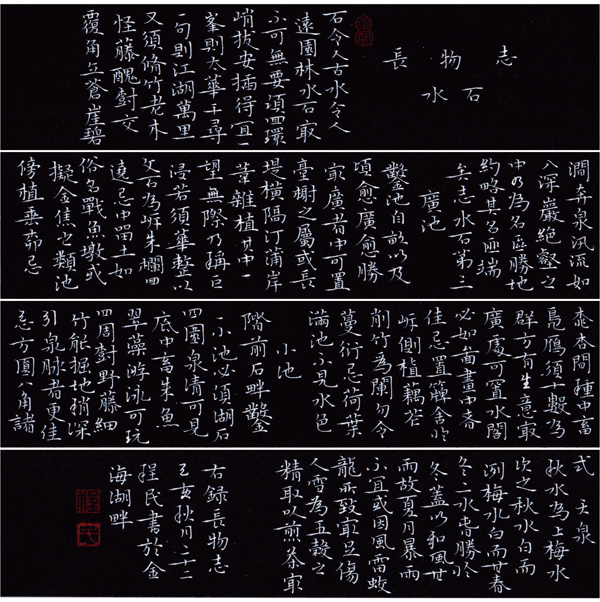 長物志
水石
石令人古水令人
遠園林水石最
不可無要須回環
峭拔安插得宜一
峯則太華千尋
一勺則江湖萬里
又須脩竹老木
怪藤醜樹交
覆角立蒼崖碧
澗奔泉汛流如
入深巖絕壑之
中乃為名區勝地
約略其名匪端
矣志水石第三
廣池
鑿池自畝以及
頃愈廣愈勝
最廣者中可置
臺榭之屬或長
堤橫隔汀蒲岸
葦雜植其中一
望無際乃稱巨
浸若須華整以
文石為岸朱欄回
遶忌中留土如
俗名戰魚墩或
擬金焦之類池
傍植垂柳忌
桃杏間種中畜
鳧雁須十數為
群方有生意最
廣處可置水閣
必如圖畫中者
佳忌置簰舍於
岸側植藕花
削竹為闌勿令
蔓衍忌荷葉
滿池不見水色
小池
階前石畔鑿
一小池必須湖石
四圍泉清可見
底中畜朱魚
翠藻游泳可玩
四周樹野藤細
竹能掘地稍深
引泉脉者更佳
忌方圓八角諸
式 天泉
秋水為上梅水
次之秋水白而
洌梅水白而甘春
冬二水春勝於
冬蓋以和風甘
雨故夏月暴雨
不宜或因風雷蛟
龍所致最足傷
人雪為五穀之
精取以煎茶最
右錄長物志
己亥秋月二十二
程民書於金
海湖畔